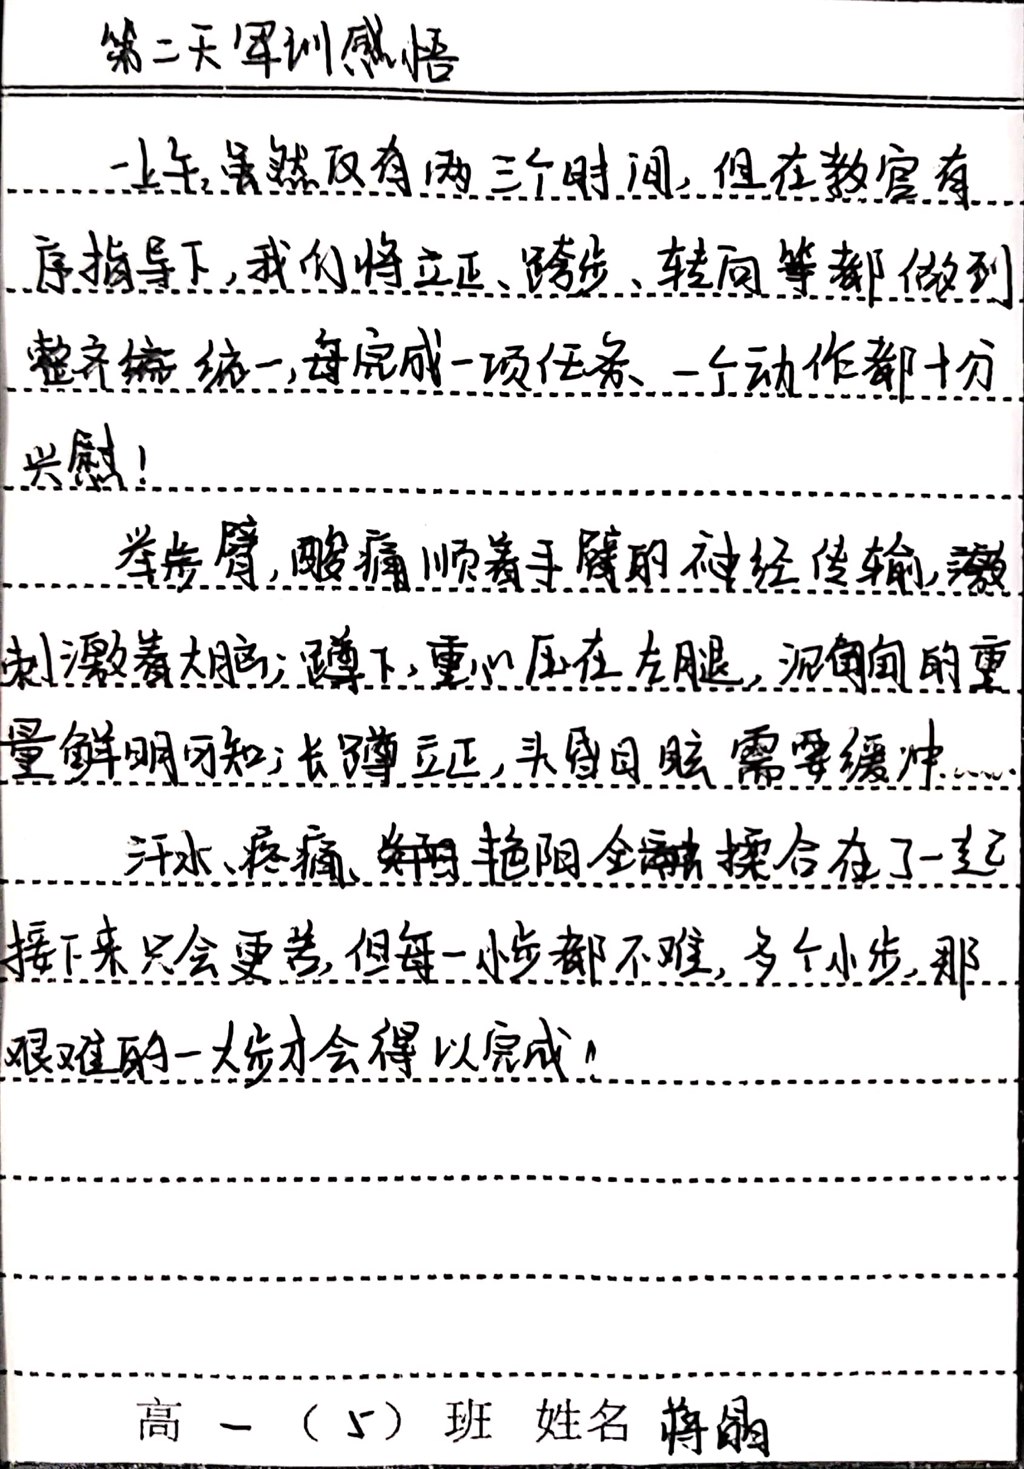 第二天军训感悟
一上午,虽然仅有两三个时间,但在教官有
序指导下,我们将立正、跨步、转向等都做到
整齐统一,每完成一项任务、一个动作都十分
兴慰!
举步臂,酸痛顺着手臂的神经传输,
刺激着大脑;蹲下,重心压在左腿,沉甸甸的重
量鲜明可知;长蹲立正,头昏目眩需要缓冲……
汗水、疼痛、艳阳全揉合在了一起
接下来只会更苦,但每一小步都不难,多个小步,那
艰难的一大步才会得以完成!
高一(5)班 姓名 蒋